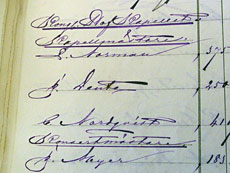 Kongl. Hof Kapellet
Kapellmästare
L. Norman , 375
J. Dente , 250
C. Nordqvist , 41
Konsertmästare
F. Meyer , 183